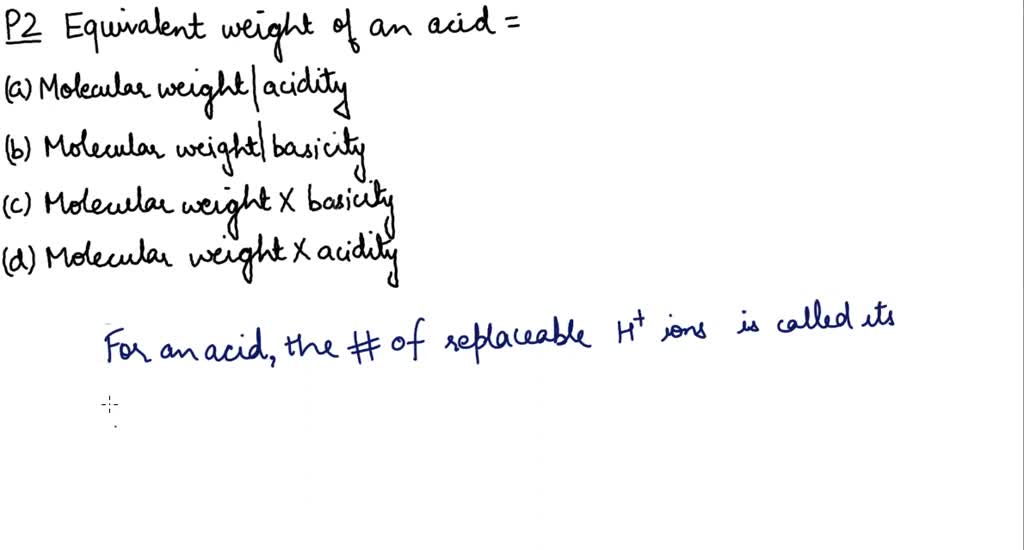 P2 Equivalent weight of an acid =
(a) Molecular weight | acidity
(b) Molecular weight | basicity
(c) Molecular weight X basicity
(d) Molecular weight X acidity
For an acid, the # of replaceable H⁺ ions is called its